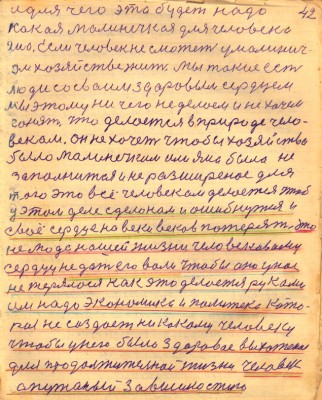 и для чего это будет надо 42
какая малинечкая для человека
яма, если человек не сможет умалинич-
ом хозяйстве жить мы такие есть
люди со своим здоровым сердцем
мы этому ни чего не делаем и не хочем
что делается в природе чело-
веком. он не хочет чтобы хозяйство
было малинечким ил яма была не
заполнится и не разширеное для
того это всё человеком делается чтоб
у этом деле сделоном и ошибнутся и
своё сердце на веки веков потерять. это
не люде нашей жизни человековому
сердцу недат его воли чтобы оно у нас
не терялося как это делается руками
им надо экономика и политека кото-
рая не создает ни какому человеку
чтобы у него было здоровое
для продолжителной жизни человек
зависимостию